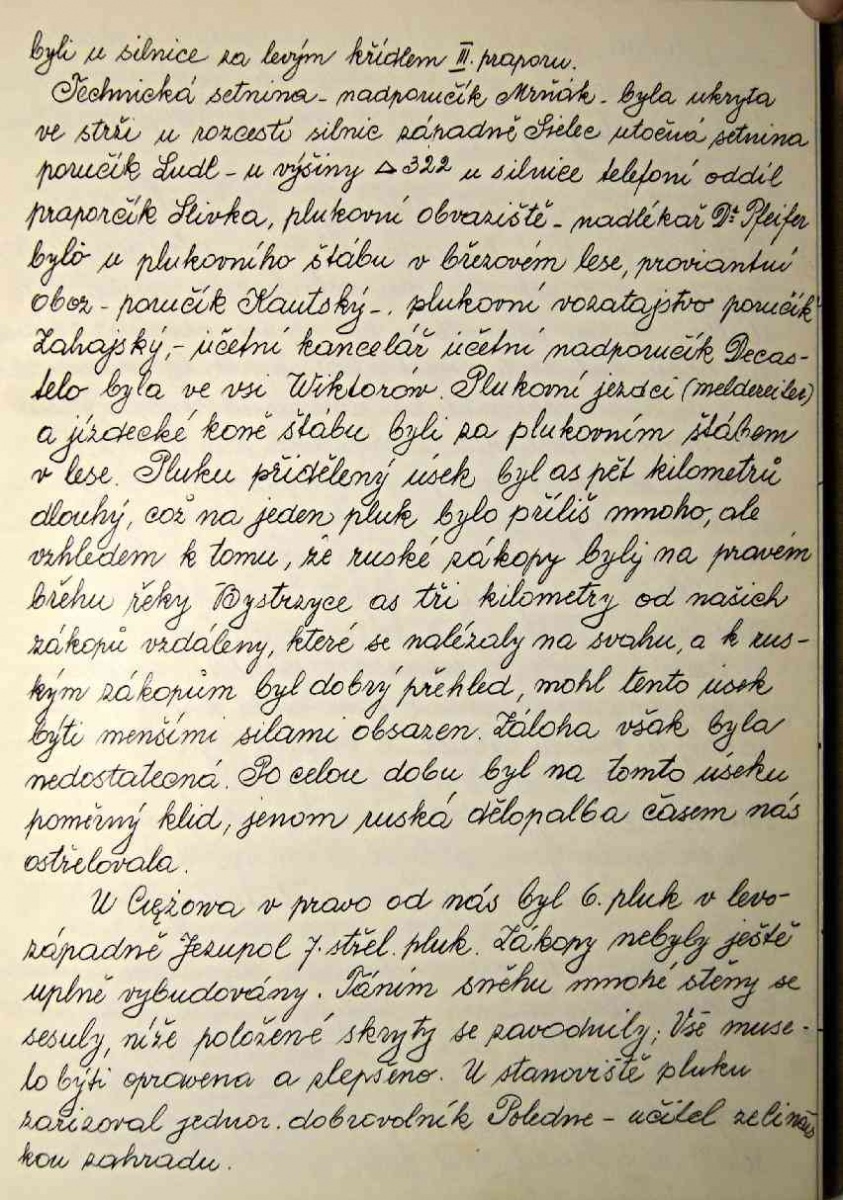 byli u silnice za levým křídlem III. praporu.
Technická setnina - nadporučík Mrňák - byla ukryta
ve strži u rozcestí silnic západně Sielec utočná setnina
poručík Ludl - u výšiny △ 322 u silnice telefoní oddíl
praporčík Slivka, plukovní obvaziště - nadlékař Dr Pfeifer
bylo u plukovního štábu v březovém lese, proviantní
oboz - poručík Kautský -, plukovní vozatajstvo poručík
Zahajský, - účetní kancelář účetní nadporučík Decas-
telo byla ve vsi Wiktorów. Plukovní jezdci (meldereiter)
a jízdecké koně štábu byli za plukovním štábem
v lese. Pluku přidělený úsek byl as pět kilometrů
dlouhý, což na jeden pluk bylo příliš mnoho, ale
vzhledem k tomu, že ruské zákopy byly na pravém
břehu řeky Bystrzyce as tři kilometry od našich
zákopů vzdáleny, které se nalézaly na svahu, a k rus-
kým zákopům byl dobrý přehled, mohl tento úsek
býti menšími silami obsazen. Záloha však byla
nedostatečná. Po celou dobu byl na tomto úseku
poměrný klid, jenom ruská dělopalba časem nás
ostřelovala.
U Ciężowa v pravo od nás byl 6. pluk v levo-
západně Jezupol 7. střel. pluk. Zákopy nebyly ještě
uplně vybudovány. Táním sněhu mnohé stěny se
sesuly, níže položené skryty se zavodnily; Vše muse-
lo býti opraveno a zlepšeno. U stanoviště pluku
zařizoval jednor. dobrovolník Poledne - učitel zelinářs
kou zahradu.